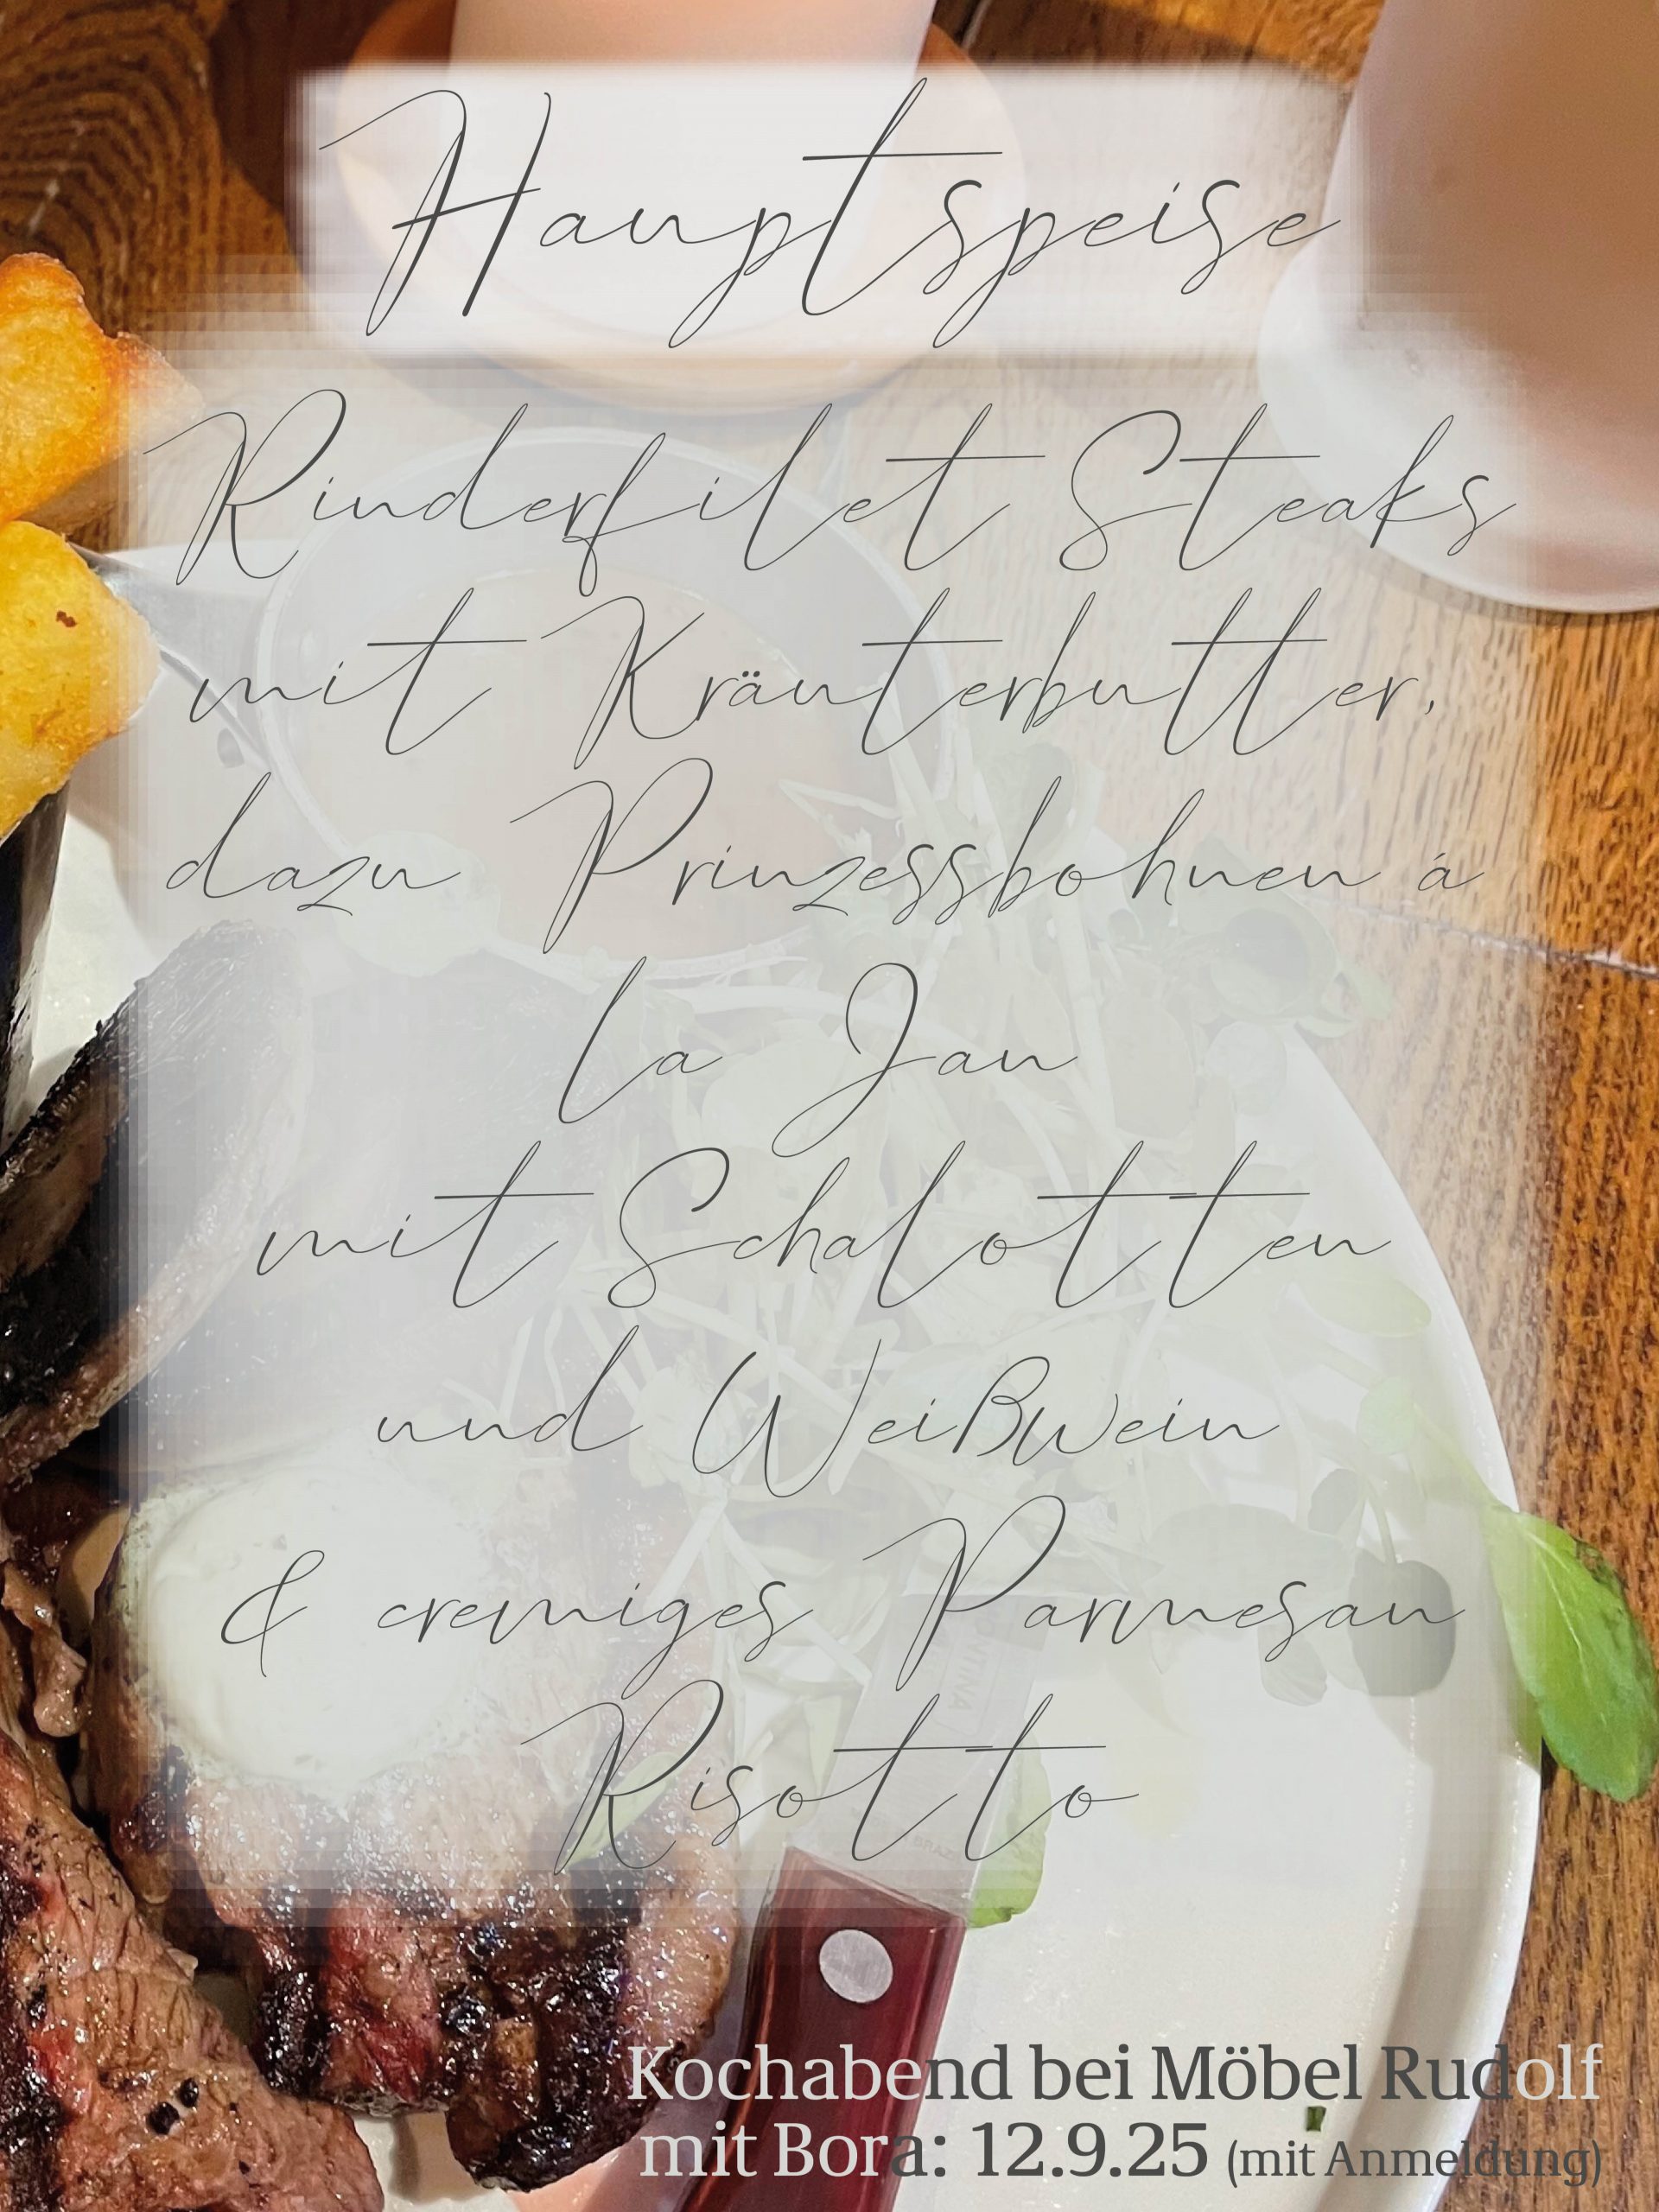 Hauptspeise
Rinderfilet Steaks
mit Kräuterbutter,
dazu Prinzessbohnen á
la Jan
mit Schalotten
und Weißwein
& cremiges Parmesan
Risotto
Kochabend bei Möbel Rudolf
mit Bora: 12.9.25 (mit Anmeldung)